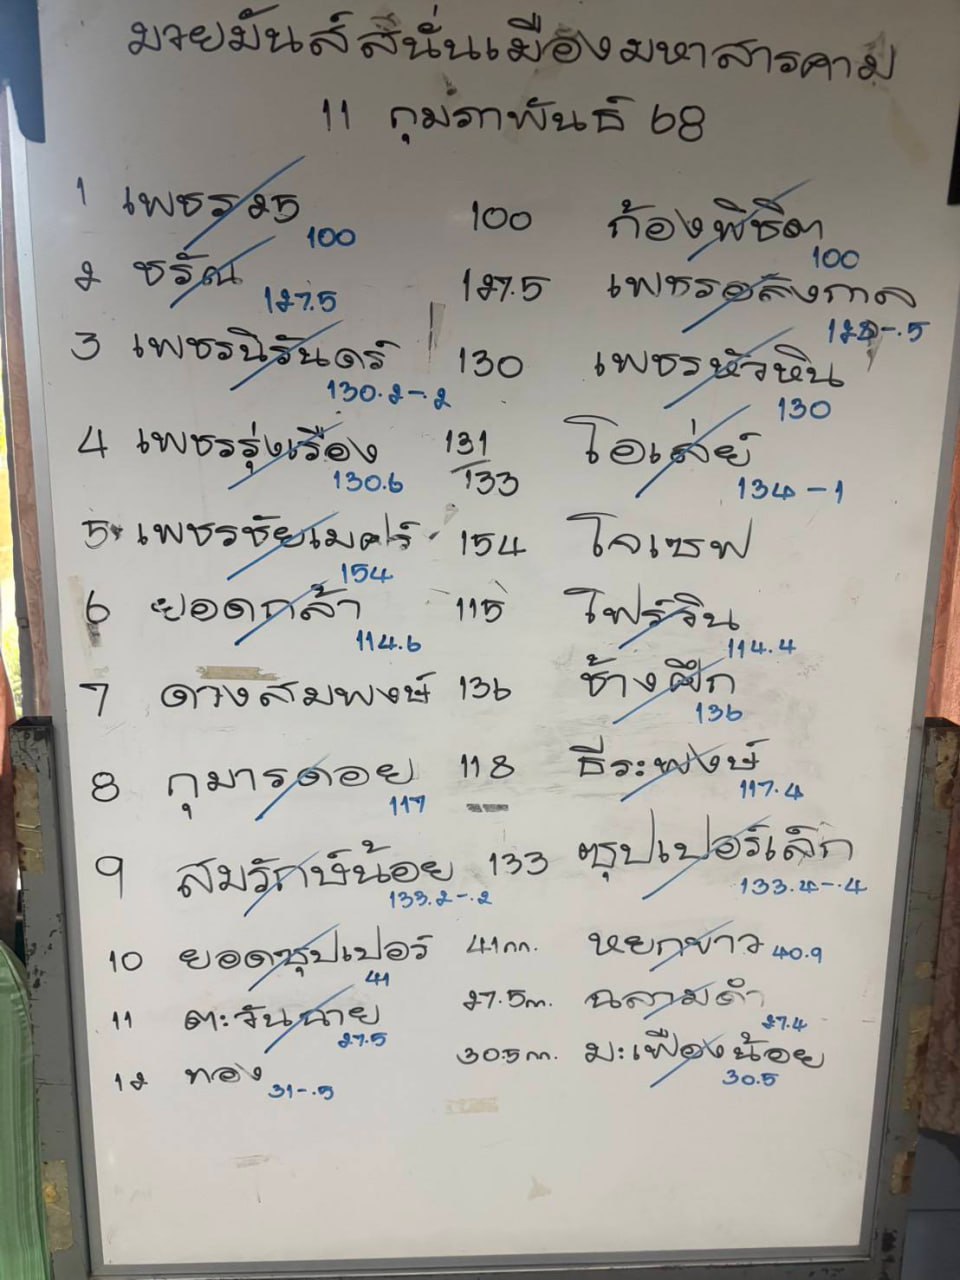 มวยมันส์สนั่นเมืองมหาสารคาม
11 กุมภาพันธ์ 68
1 เพชร 25 100 ก้องพิชิต
100 100
2 ชรัณ 127.5 เพชรอลังกาล
127.5 -.5
3 เพชรนิรันดร์ 130 เพชรหัวหิน
130.2-.2 130
4 เพชรรุ่งเรือง 131/133 โอเล่ย์
130.6 134-1
5 เพชรชัยเมศร์ 154 โจเซฟ
154
6 ยอดกล้า 115 ไฟร์วิน
114.6 114.4
7 ดวงสมพงษ์ 136 ช้างศึก
136
8 กุมารดอย 118 ธีระพงษ์
117 117.4
9 สมรักษ์น้อย 133 ซุปเปอร์เล็ก
133.2-.2 133.4-.4
10 ยอดซุปเปอร์ 41กก. หยกขาว 40.9
41
11 ตะวันฉาย 27.5ก. ฉลามดำ
27.5 27.4
12 ทอง 30.5ก. มะเฟืองน้อย
31-.5 30.5